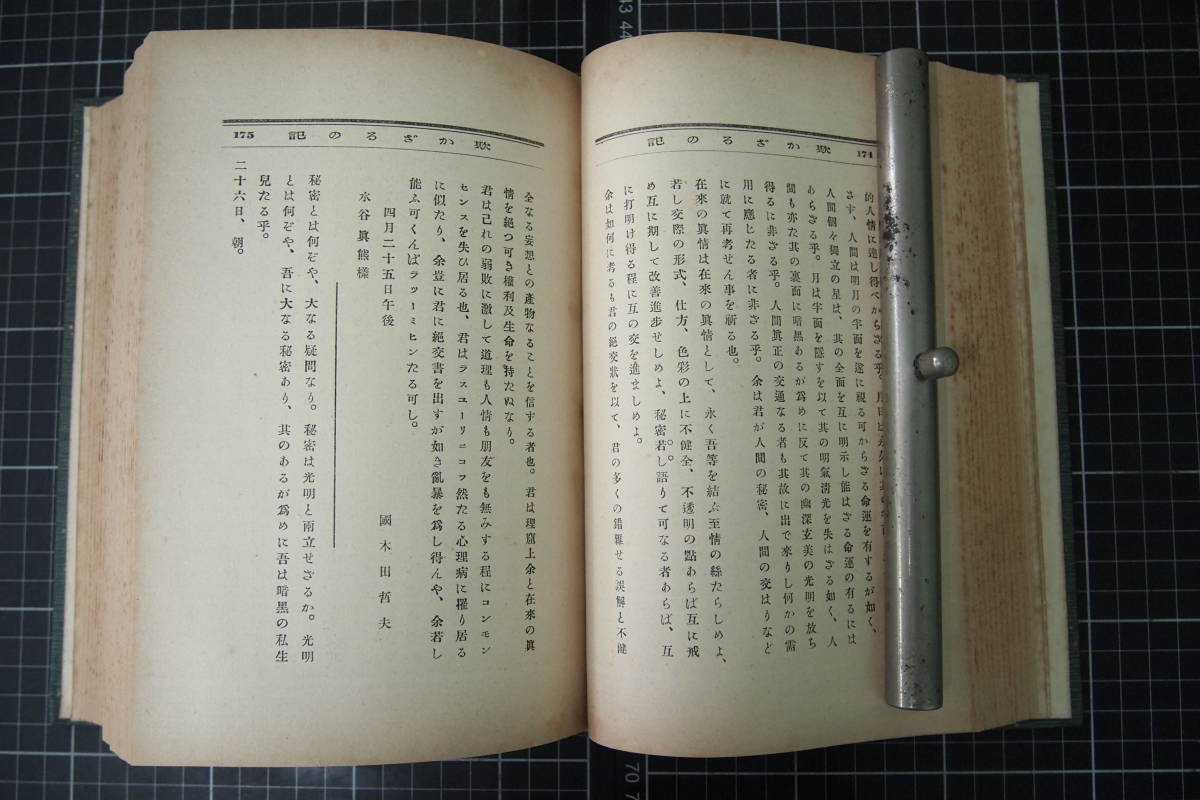 欺かざるの記
174
的人情に達し得べからざる乎。
さず、人間は明月の半面を遂に視る可からざる命運を有するが如く、
人間個々獨立の星は、其の全面を互に明示し能はざる命運の有るには
あらざる乎。月は半面を隱すを以て其の明氣清光を失はざる如く、人
間も亦た其の裏面に暗黑あるが爲めに反て其の幽深玄美の光明を放ち
得るに非ざる乎。人間眞正の交通なる者も其故に出で來りし何かの需
用に應じたる者に非ざる乎。余は君が人間の秘密、人間の交はりなど
に就て再考せん事を祈る也。
在來の眞情は在來の眞情として、永く吾等を結ぶ至情の絲たらしめよ、
若し交際の形式、仕方、色彩の上に不健全、不透明の點あらば互に戒
め互に期して改善進步せしめよ、秘密若し語りて可なる者あらば、互
に打明け得る程に互の交を進ましめよ。
余は如何に考るも君の絕交狀を以て、君の多くの錯雜せる誤解と不健
欺かざるの記
175
全なる妄想との產物なることを信ずる者也。君は理窟上余と在來の眞
情を絕つ可き權利及生命を持たぬなり。
君は己れの弱敗に激して道理も人情も朋友をも無みする程にコンモン
センスを失ひ居る也、君はラスコーリニコフ然たる心理病に罹り居る
に似たり、余豈に君に絕交書を出すが如き亂暴を爲し得んや、余若し
能ふ可くんばラツーミヒンたる可し。
四月二十五日午後
國木田哲夫
水谷眞熊樣
秘密とは何ぞや、大なる疑問なり。秘密は光明と兩立せざるか。光明
とは何ぞや、吾に大なる秘密あり、其のあるが爲めに吾は暗黑の私生
兒たる乎。
二十六日、朝。
43
44
70
71